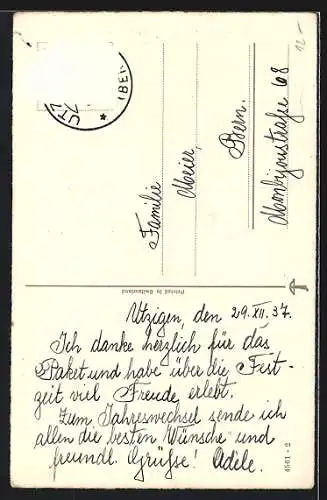 Utzigen, den 29. XII. 37.
Ich danke herzlich für das
Paket und habe über die Fest-
zeit viel Freude erlebt.
Zum Jahreswechsel sende ich
allen die besten Wünsche und
freundl. Grüsse! Adele.
Familie
Meier,
Bern.
Monbijoustraße 68
Printed in Switzerland
4561 - 2
12 -